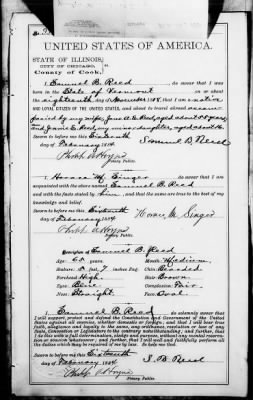 UNITED STATES OF AMERICA.
STATE OF ILLINOIS,
CITY OF CHICAGO, ss.
County of Cook,
I, Samuel B. Reed, do swear that I was
born in the State of Vermont on or about
the eighteenth day of November 1818, that I am a native
AND LOYAL CITIZEN OF THE UNITED STATES, and about to travel abroad accom-
panied by my wife, Jane E. Reed, aged about 55 years,
and Jennie E. Reed, my daughter, aged about
Sworn to before me this Sixteenth
day of February 1884. Samuel B. Reed
Notary Public.
I, Horace M. Singer, do swear that I am
acquainted with the above named Samuel B. Reed
and with the facts stated by him, and that the same are true to the best of my
knowledge and belief.
Sworn to before me this Sixteenth
day of February 1884. Horace M. Singer
Notary Public.
Description of Samuel B. Reed
Age: 65 years Mouth: Medium
Stature: 5 feet, 7 inches Eng. Chin: Bearded
Forehead: High Hair: Brown
Eyes: Blue Complexion: Fair
Nose: Straight Face: Oval
I, Samuel B. Reed do solemnly swear that I
will support, protect and defend the Constitution and Government of the United
States against all enemies, whether domestic or foreign; and that I will bear true
faith, allegiance and loyalty to the same, any ordinance, resolution or law of any
State, Convention or Legislature to the contrary notwithstanding; and further, that
I do this with a full determination, pledge and purpose, without any mental reserva-
tion or evasion whatsoever; and further, that I will well and faithfully perform all
the duties which may be required of me by law. So help me God.
Sworn to before me this Sixteenth
day of February 1884 S. B. Reed
Notary Public.